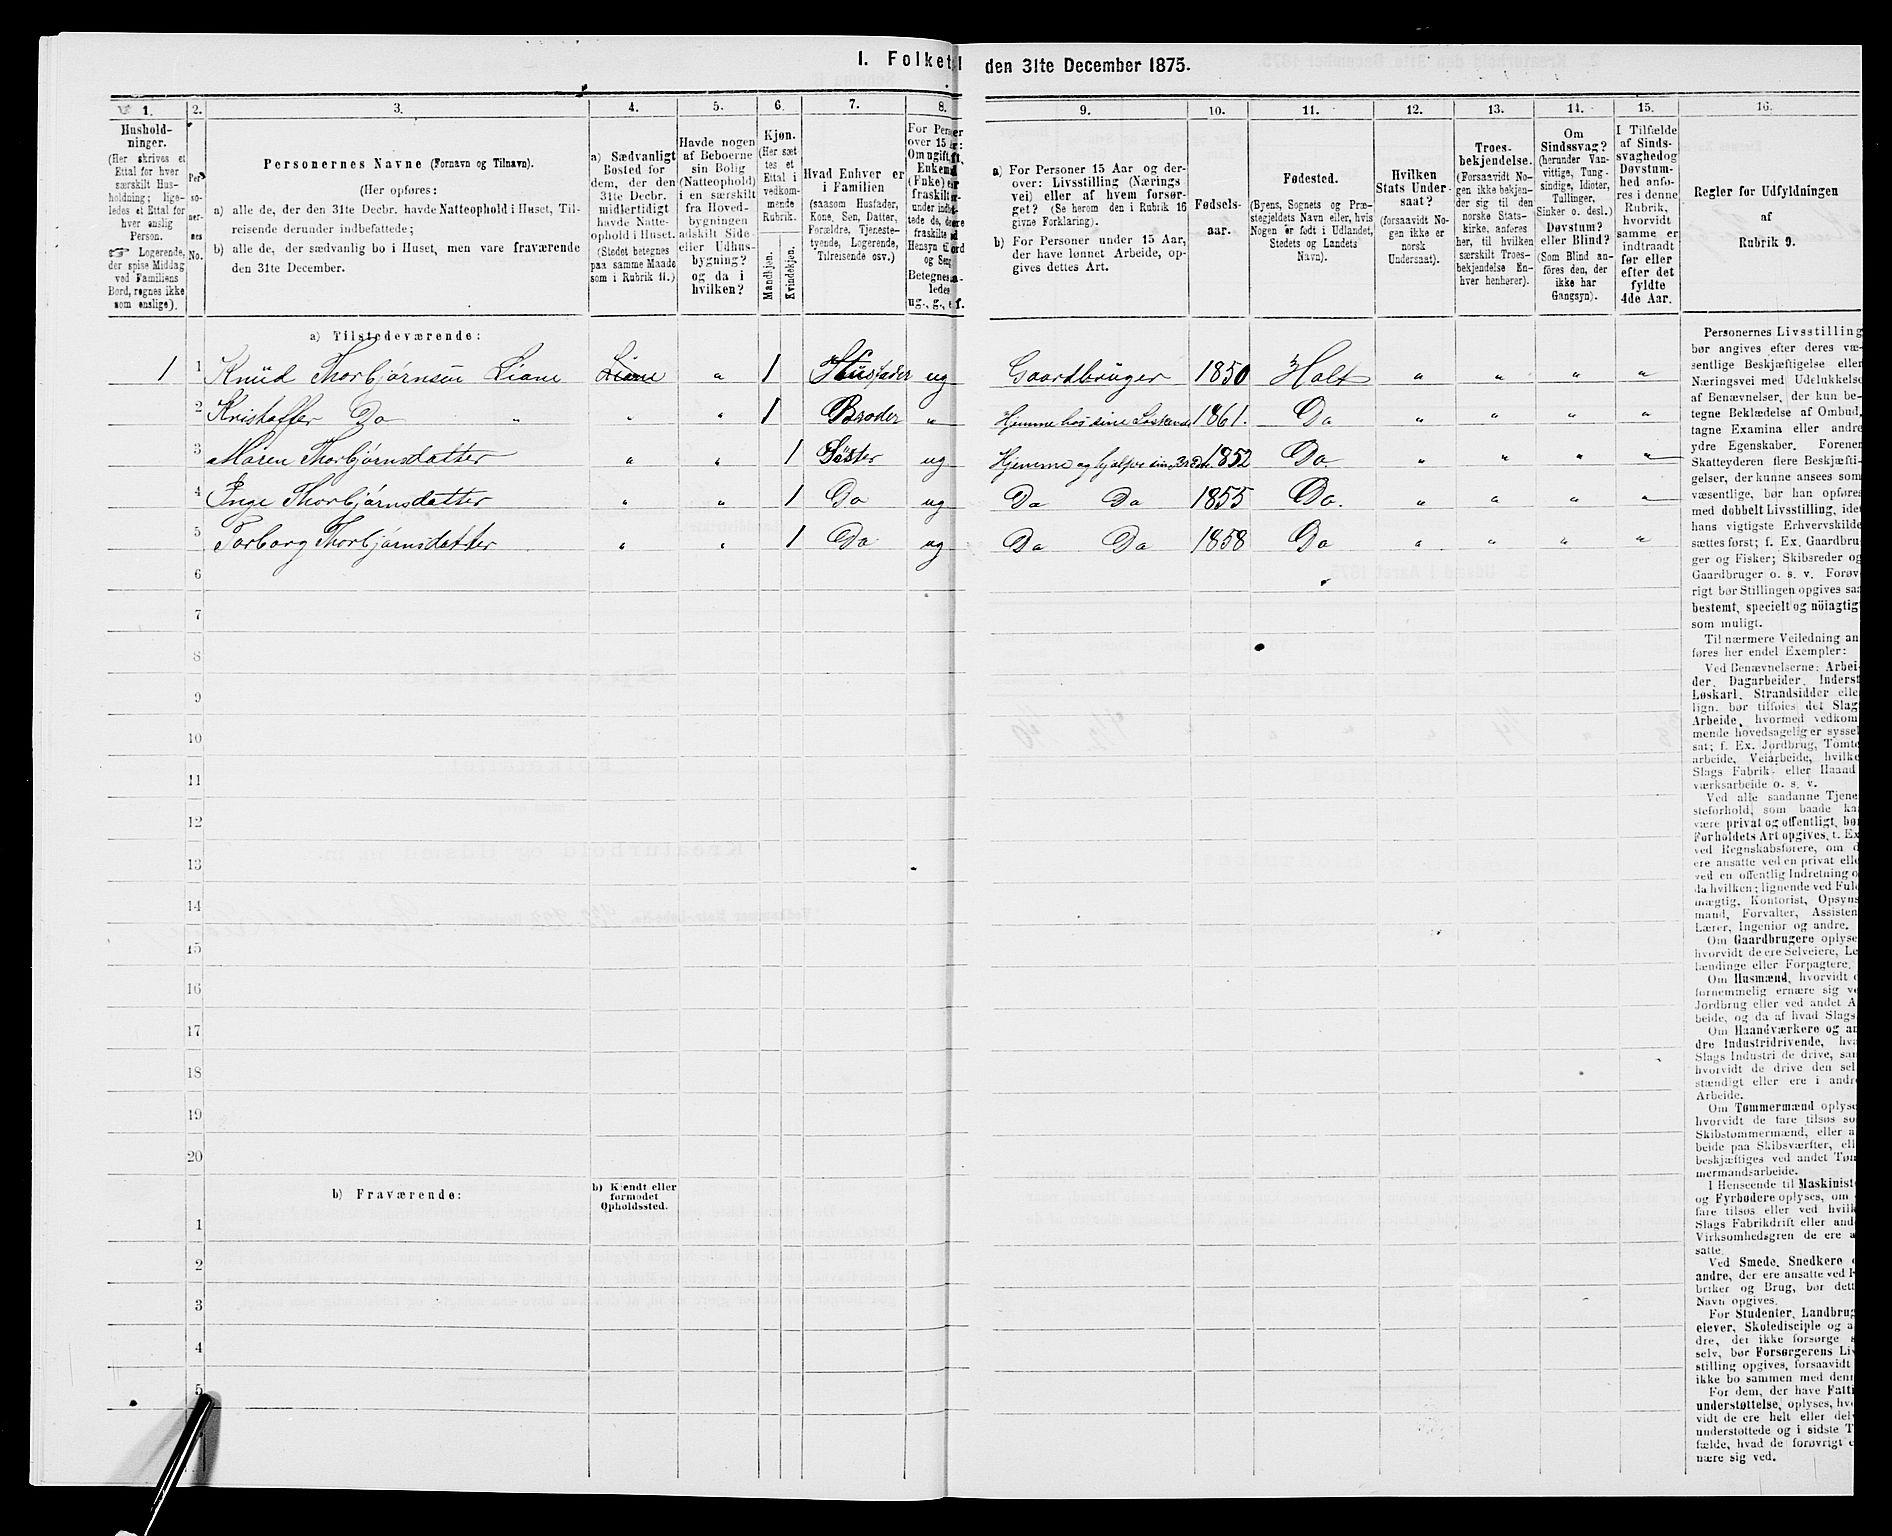 I. Folketal den 31te December 1875.
1. 2. 3. 4. 5. 6. 7. 8. 9. 10. 11. 12. 13. 14. 15. 16.
Hushold-
ninger.
(Her skrives et
Ettal for hver
særskilt Hus-
holdning; lige-
ledes et Ettal for
hver enslig
Person.
☞ Logerende,
der spise Middag
ved Familiens
Bord, regnes ikke
som enslige).
Per-
so-
ner-
nes
No.
Personernes Navne (Fornavn og Tilnavn).
(Her opføres:
a) alle de, der den 31te Decbr. havde Natteophold i Huset, Til-
reisende derunder indbefattede;
b) alle de, der sædvanlig bo i Huset, men vare fraværende
den 31te December.
a) Sædvanligt
Bosted for
dem, der den
31te Decbr.
midlertidigt
havde Natte-
ophold i Huset.
(Stedet betegnes
paa samme Maade
som i Rubrik 11.)
Havde nogen
af Beboerne
sin Bolig
(Natteophold)
i en særskilt
fra Hoved-
bygningen
adskilt Side-
eller Udhus-
bygning?
og da i
hvilken?
Kjøn.
(Her sæt-
tes et
Ettal i
vedkom-
mende
Rubrik.
Mandkjøn.
Kvindekjøn.
Hvad Enhver er
i Familien
(saasom Husfader,
Kone, Søn, Datter,
Forældre, Tjeneste-
tyende, Logerende,
Tilreisende osv.)
For Personer
over 15
Om ugift,
Enkemand
(Enke) eller
fraskilt
Betegnes
ledes
ug., g., e., f.
a) For Personer 15 Aar og der-
over: Livsstilling (Nærings
vei) eller af hvem forsør-
get? (Se herom den i Rubrik 16
givne Forklaring).
b) For Personer under 15 Aar,
der have lønnet Arbeide, op-
gives dettes Art.
Fødsels-
aar.
Fødested.
(Byens, Sognets og Præ-
stegjeldets Navn eller, hvis
Nogen er født i Udlandet,
Stedets og Landets
Navn).
Hvilken
Stats Under-
saat?
(forsaavidt No-
gen ikke er
norsk
Undersaat).
Troes-
bekjendelse.
(Forsaavidt No-
gen ikke bekjen-
der sig til den
norske Stats-
kirke, anføres
her, til hvilken
særskilt Troes-
bekjendelse En-
hver henhører).
Om
Sindssvag?
(herunder Van-
vittige, Tung-
sindige, Idioter,
Tullinger,
Sinker o. desl.)
Døvstum?
eller Blind?
(Som Blind an-
føres den, der
ikke har
Gangsyn).
I Tilfælde
af Sinds-
svaghed og
Døvstum-
hed anfø-
res i denne
Rubrik,
hvorvidt
samme er
indtraadt
før eller
efter det
fyldte
4de Aar.
Regler for Udfyldningen
af
Rubrik 9.
a) Tilstedeværende:
1 1 Knud Thorbjørnsen Liane Liane " 1 Husfader ug Gaardbruger 1850 Holt " " " "
2 Kristoffer Do " " " 1 Broder " Hjemme hos sine Søskende 1861. Do " " " "
3 Maren Thorbjørnsdatter " " 1 Søster ug Hjemme og hjælper sin 1852 Do " " " "
4 Inge Thorbjørnsdatter " " 1 Do ug Do Do 1855 Do. " " " "
5 Torborg Thorbjørnsdatter " " 1 Do ug Do Do 1858 Do " " " "
6
7
8
9
10
11
12
13
14
15
16
17
18
19
20
b) Fraværende:
b) Kjendt eller
formodet
Opholdssted.
1
2
3
4
5
Personernes Livsstilling
bør angives efter deres væ-
sentlige Beskjæftigelse eller
Næringsvei med Udelukkelse
af Benævnelser, der kun be-
tegne Beklædelse af Ombud,
tagne Examina eller andre
ydre Egenskaber. Forener
Skatteyderen flere Beskjæfti-
gelser, der kunne ansees som
væsentlige, bør han opføres
med dobbelt Livsstilling, idet
hans vigtigste Erhvervskilde
sættes først; f. Ex. Gaardbru-
ger og Fisker; Skibsreder og
Gaardbruger o. s. v. Forøv-
rigt bør Stillingen opgives saa
bestemt, specielt og nöiagtig
som muligt.
Til nærmere Veiledning an-
føres her endel Exempler:
Ved Benævnelserne: Arbei-
der, Dagarbeider, Inderst
Løskarl, Strandsidder elle
lign. bør tilføies det Slag
Arbeide, hvormed vedkom
mende hovedsagelig er syssel
sat; f. Ex. Jordbrug, Tomte
arbeide, Veiarbeide, hvilke
Slags Fabrik- eller Haand
værksarbeide o. s. v.
Ved alle saadanne Tjene
steforhold, som baade ka
være privat og offentligt, bø
Forholdets Art opgives, t. Ex
ved Regnskabsførere, om d
ere ansatte ved en privat elle
ved en offentlig Indretning o
da hvilken; lignende ved Ful
mægtig, Kontorist, Opsyns
mand, Forvalter, Assisten
Lærer, Ingeniør og andre.
Om Gaardbrugere oplyse
hvorvidt de ere Selveiere, Le
lændinge eller Forpagtere.
Om Husmænd, hvorvidt
fornemmelig ernære sig ve
Jordbrug eller ved andet A
beide, og da af hvad Slags
Om Haandværkere og an
dre Industridrivende, hva
Slags Industri de drive, san
hvorvidt de drive den sel
stændigt eller ere i andr
Arbeide.
Om Tømmermænd oplyse
hvorvidt de fare tilsøs so
Skibstømmermænd, eller a
beide paa Skibsværfter, ell
beskjæftiges ved andet Tøm
mermandsarbeide.
I Henseende til Maskinist
og Fyrbødere oplyses, om
fare tilsøs eller ved hvilk
Slags Fabrikdrift eller and
Virksomhedsgren de ere a
satte.
Ved Smede, Snedkere
andre, der ere ansatte ved F
briker og Brug, bør dett
Navn opgives.
For Studenter, Landbrug
elever, Skoledisciple og a
dre, der ikke forsørge s
selv, bør Forsørgerens Liv
stilling opgives, forsaavidt
ikke bo sammen med denn
For dem, der have Fatti
understøttelse, oplyses, hvo
vidt de ere helt eller delv
understøttede og i sidste T
fælde, hvad de forøvrigt e
nære sig ved.